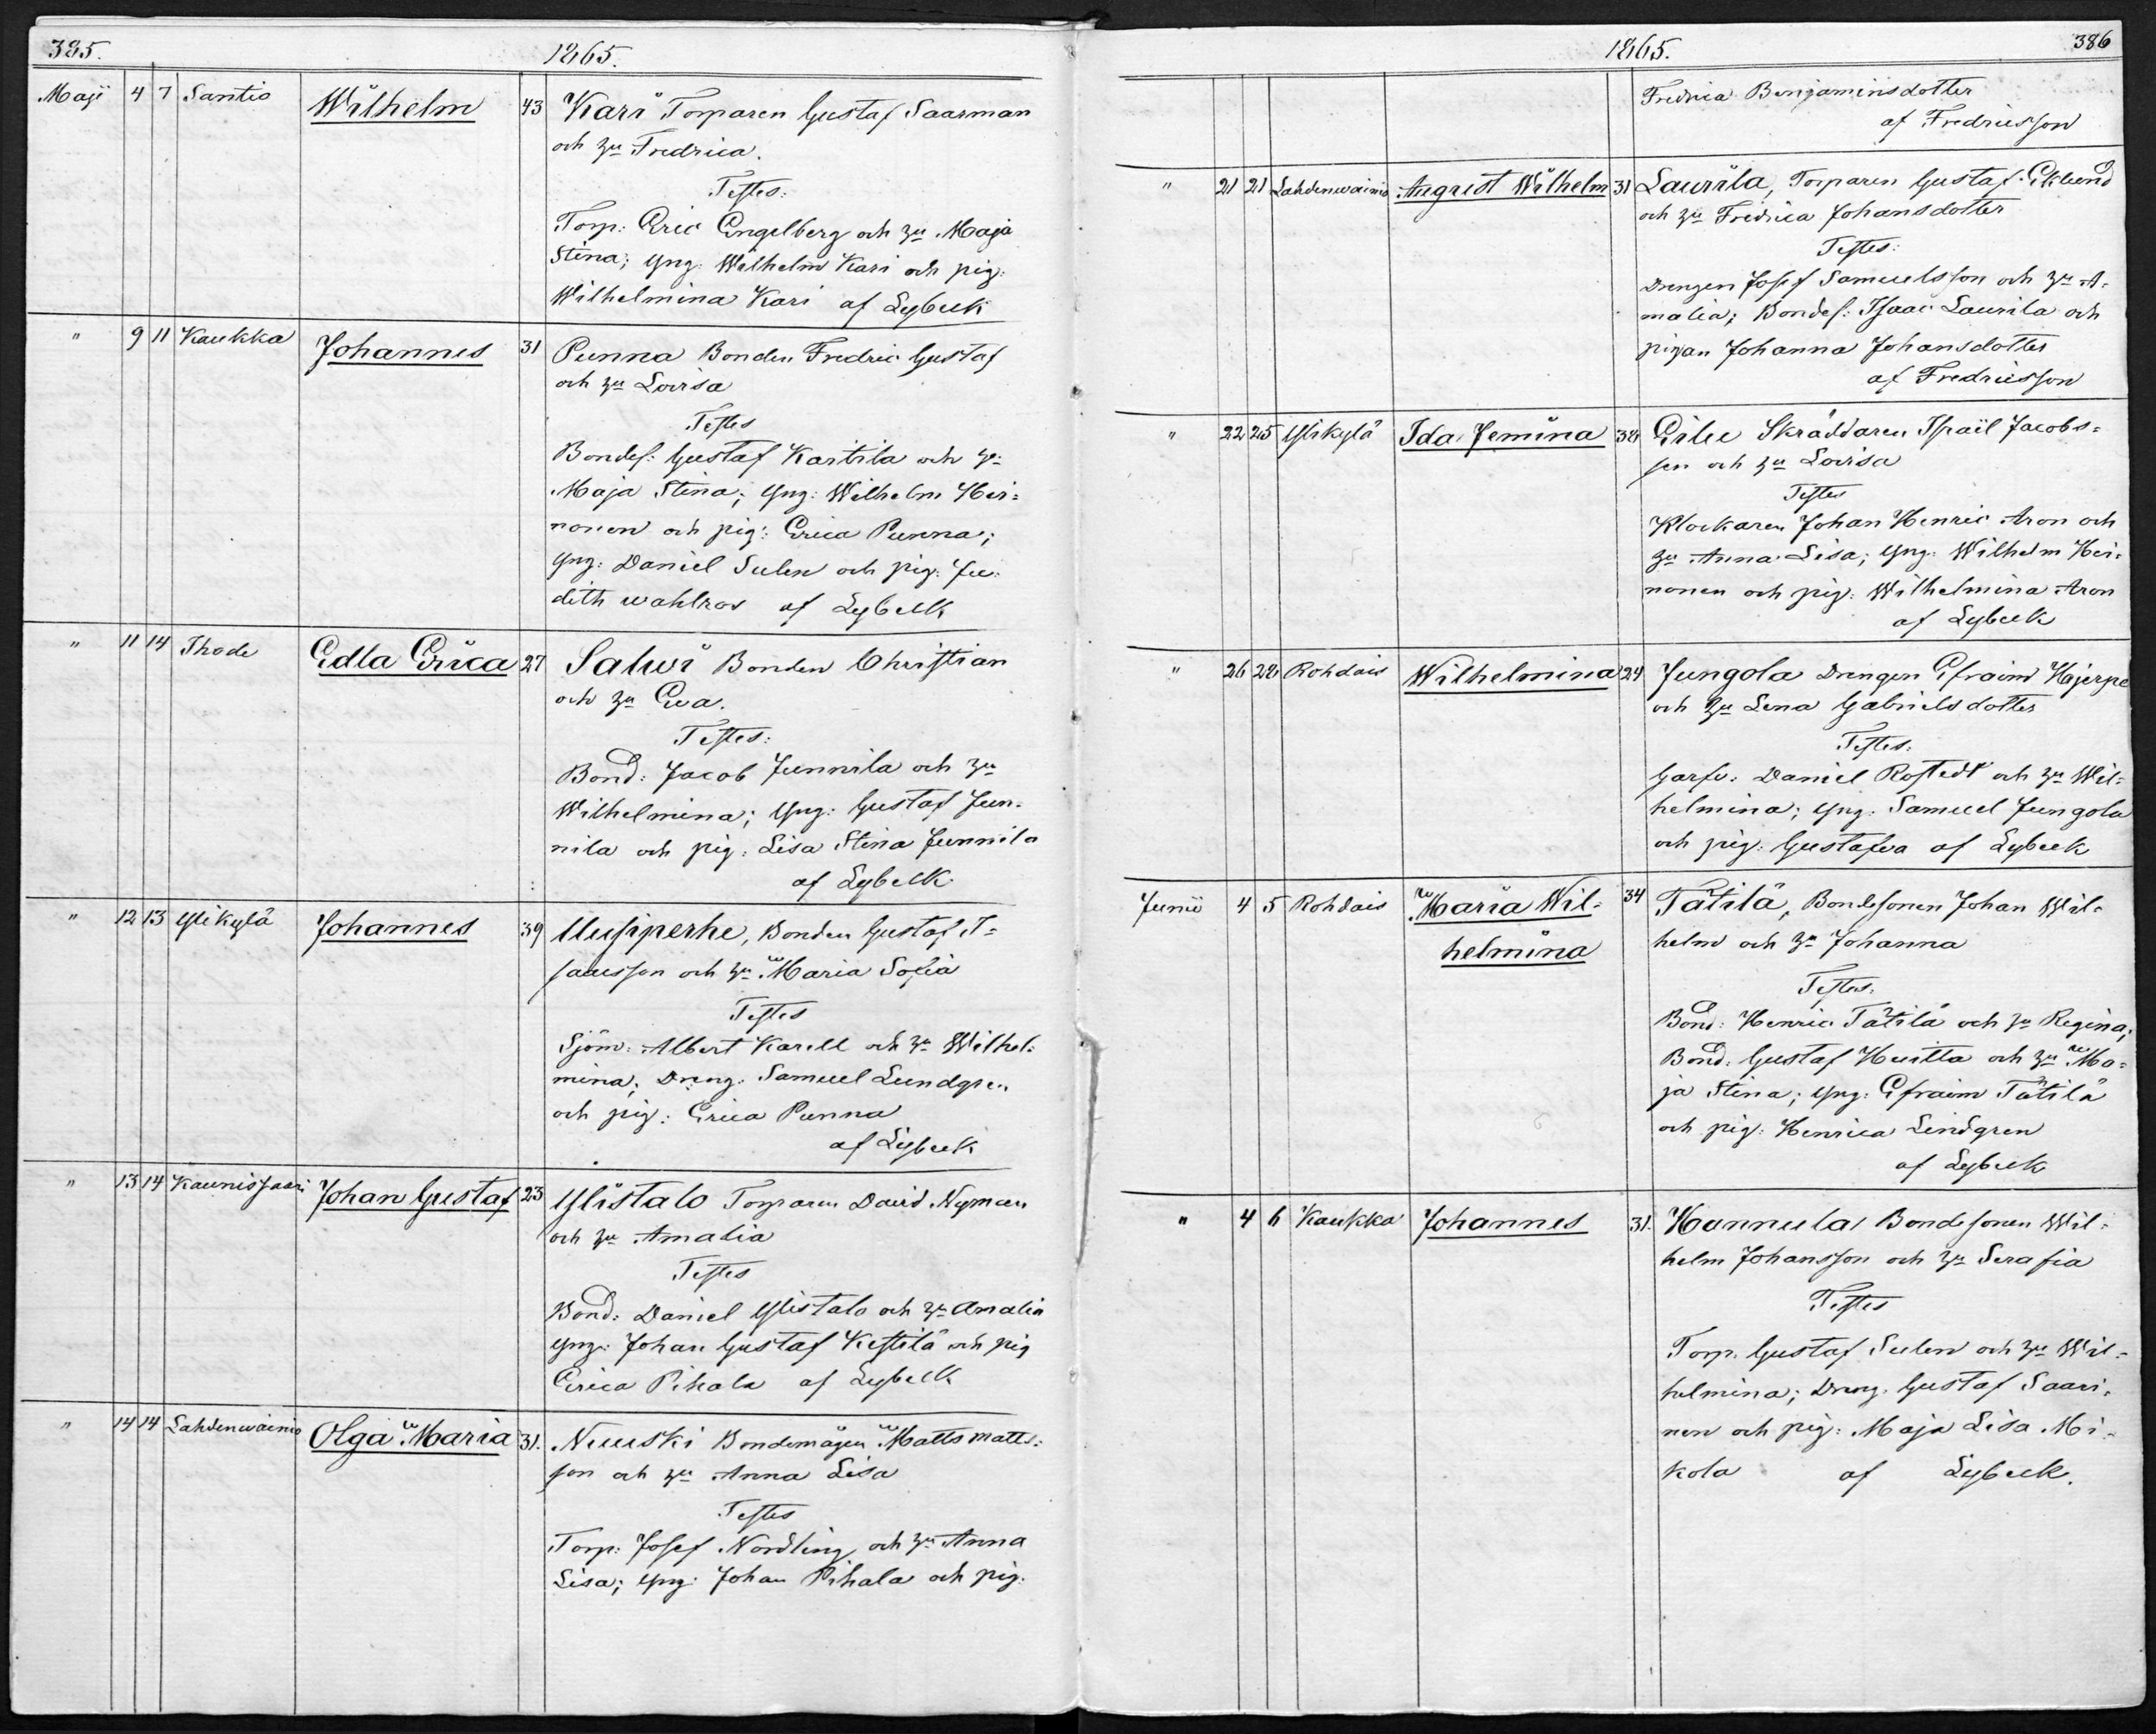 385.
1865.
Maji 4 7 Santio Wilhelm 43 Kari Torparen Gustaf Saarman
och hu Fredrica.
Testes:
Torp: Eric Engelberg och hu Maja
Stina; yng: Wilhelm Kari och pig:
Wilhelmina Kari af Lybeck
" 9 11 Kaukka Johannes 31 Punna Bonden Fredric Gustaf
och hu Lovisa
Testes
Bondes: Gustaf Kartila och h:
Maja Stina; yng: Wilhelm Hei=
nonen och pig: Erica Punna;
yng: Daniel Sulen och pig: Ju=
dith wahlros af Lybeck
" 11 14 Thode Edla Erica 27 Salwi Bonden Christian
och hu Eva.
Testes:
Bond: Jacob Junnila och hu
Wilhelmina; yng: Gustaf Jun=
nila och pig: Lisa Stina Junnila
af Lybeck
" 12 13 Ylikylä Johannes 39 Uusiperhe, Bonden Gustaf I=
saacsson och hu Maria Sofia
Testes
Sjöm: Albert Karell och hu Wilhel=
mina; Dreng: Samuel Lundgren
och pig: Erica Punna
af Lybeck
" 13 14 Kaunissaari Johan Gustaf 23 Ylistalo Torparen David Nyman
och hu Amalia
Testes
Bond: Daniel Ylistalo och hu Amalia
yng: Johan Gustaf Kestilä och pig
Erica Pihala af Lybeck
" 14 14 Lahdenwainio Olga Maria 31. Nuuski Bondemågen Matts Matts=
son och hu Anna Lisa
Testes
Torp: Josef Nordling och hu Anna
Lisa; yng: Johan Pihala och pig:
1865.
386
Fredrica Benjaminsdotter
af Fredricsson
" 21 21 Lahdenwainio August Wilhelm 31 Laurila, Torparen Gustaf Eklund
och hu Fredrica Johansdotter
Testes:
Drengen Josef Samuelsson och hu A=
malia; Bondes: Isaac Laurila och
pigan Johanna Johansdotter
af Fredricsson
" 22 25 Ylikylä Ida Jemina 38 Eihu Skräddaren Israël Jacobs=
son och hu Lovisa
Testes
Klockaren Johan Henric Aron och
hu Anna Lisa; yng: Wilhelm Hei=
nonen och pig: Wilhelmina Aron
af Lybeck
" 26 28 Rohdais Wilhelmina 24 Jungola Drengen Efraim Hajerpe
och hu Lena Gabrielsdotter
Testes:
Garfv: Daniel Rostedt och hu Wil=
helmina; yng: Samuel Jungola
och pig: Gustafva af Lybeck
Junii 4 5 Rohdais Maria Wil= 34 Tätilä, Bondesonen Johan Wil=
helmina
helm och hu Johanna
Testes:
Bond: Henric Tätilä och hu Regina;
Bond: Gustaf Huitta och hu Ma=
ja Stina; yng: Efraim Tätilä
och pig: Henrica Lindgren
af Lybeck
" 4 6 Kaukka Johannes 31. Hannula, Bondesonen Wil=
helm Johansson och hu Serafia
Testes
Torp: Gustaf Sulen och hu Wil=
helmina; Dreng: Gustaf Saari=
nen och pig: Maja Lisa Mi=
kola af Lybeck.